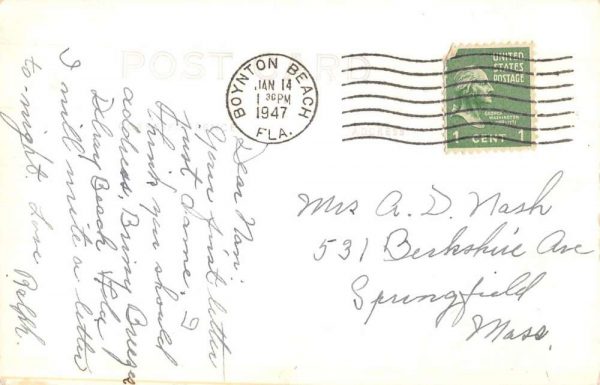 POST CARD
BOYNTON BEACH
JAN 14
1 30 PM
1947
FLA.
UNITED
STATES
POSTAGE
GEORGE
WASHINGTON
1 CENT 1
ADDRESS
Dear Nan:
Your first letter
just came. I
think you should
address, Briny Breezes
Delray Beach Fla
I will write a letter
to-night. Love Ralph.
Mrs A. D. Nash
531 Berkshire Ave
Springfield
Mass.